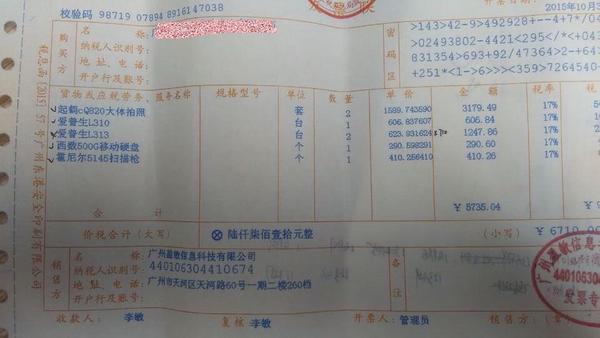 联
开票日期: 2015年10月3
校验码 98719 07894 89161 47038
购买方
名称:
纳税人识别号:
地址、电话:
开户行及账号:
密码区
>143>42-9>492928+--4+7*/0
>02493802-4421<295</*<+04
815354>693+92/47364>2-+6
+251*<1->6>>><359>7264540
货物或应税劳务、服务名称 规格型号 单位 数量 单价 金额 税率
起鹤cQ820大体拍照 套 2 1589.743590 3179.49 17%
爱普生L310 台 1 606.837607 606.84 17%
爱普生L313 台 2 623.931624 1247.86 17%
西数500G移动硬盘 个 1 290.598291 290.60 17%
霍尼尔5145扫描枪 个 1 410.256410 410.26 17%
合计 ￥5735.04
价税合计(大写) ⊗陆仟柒佰壹拾元整 (小写) ￥6710.00
销售方
名称: 广州盈敏信息科技有限公司
纳税人识别号: 440106304410674
地址、电话: 广州市天河区天河路60号一期二楼260档
开户行及账号:
备注
收款人: 李敏 复核 李敏 开票人: 管理员 销售方: (章
税总函〔2015〕57号广州东港安全印刷有限公司
广州盈敏信息
44010630
发票专